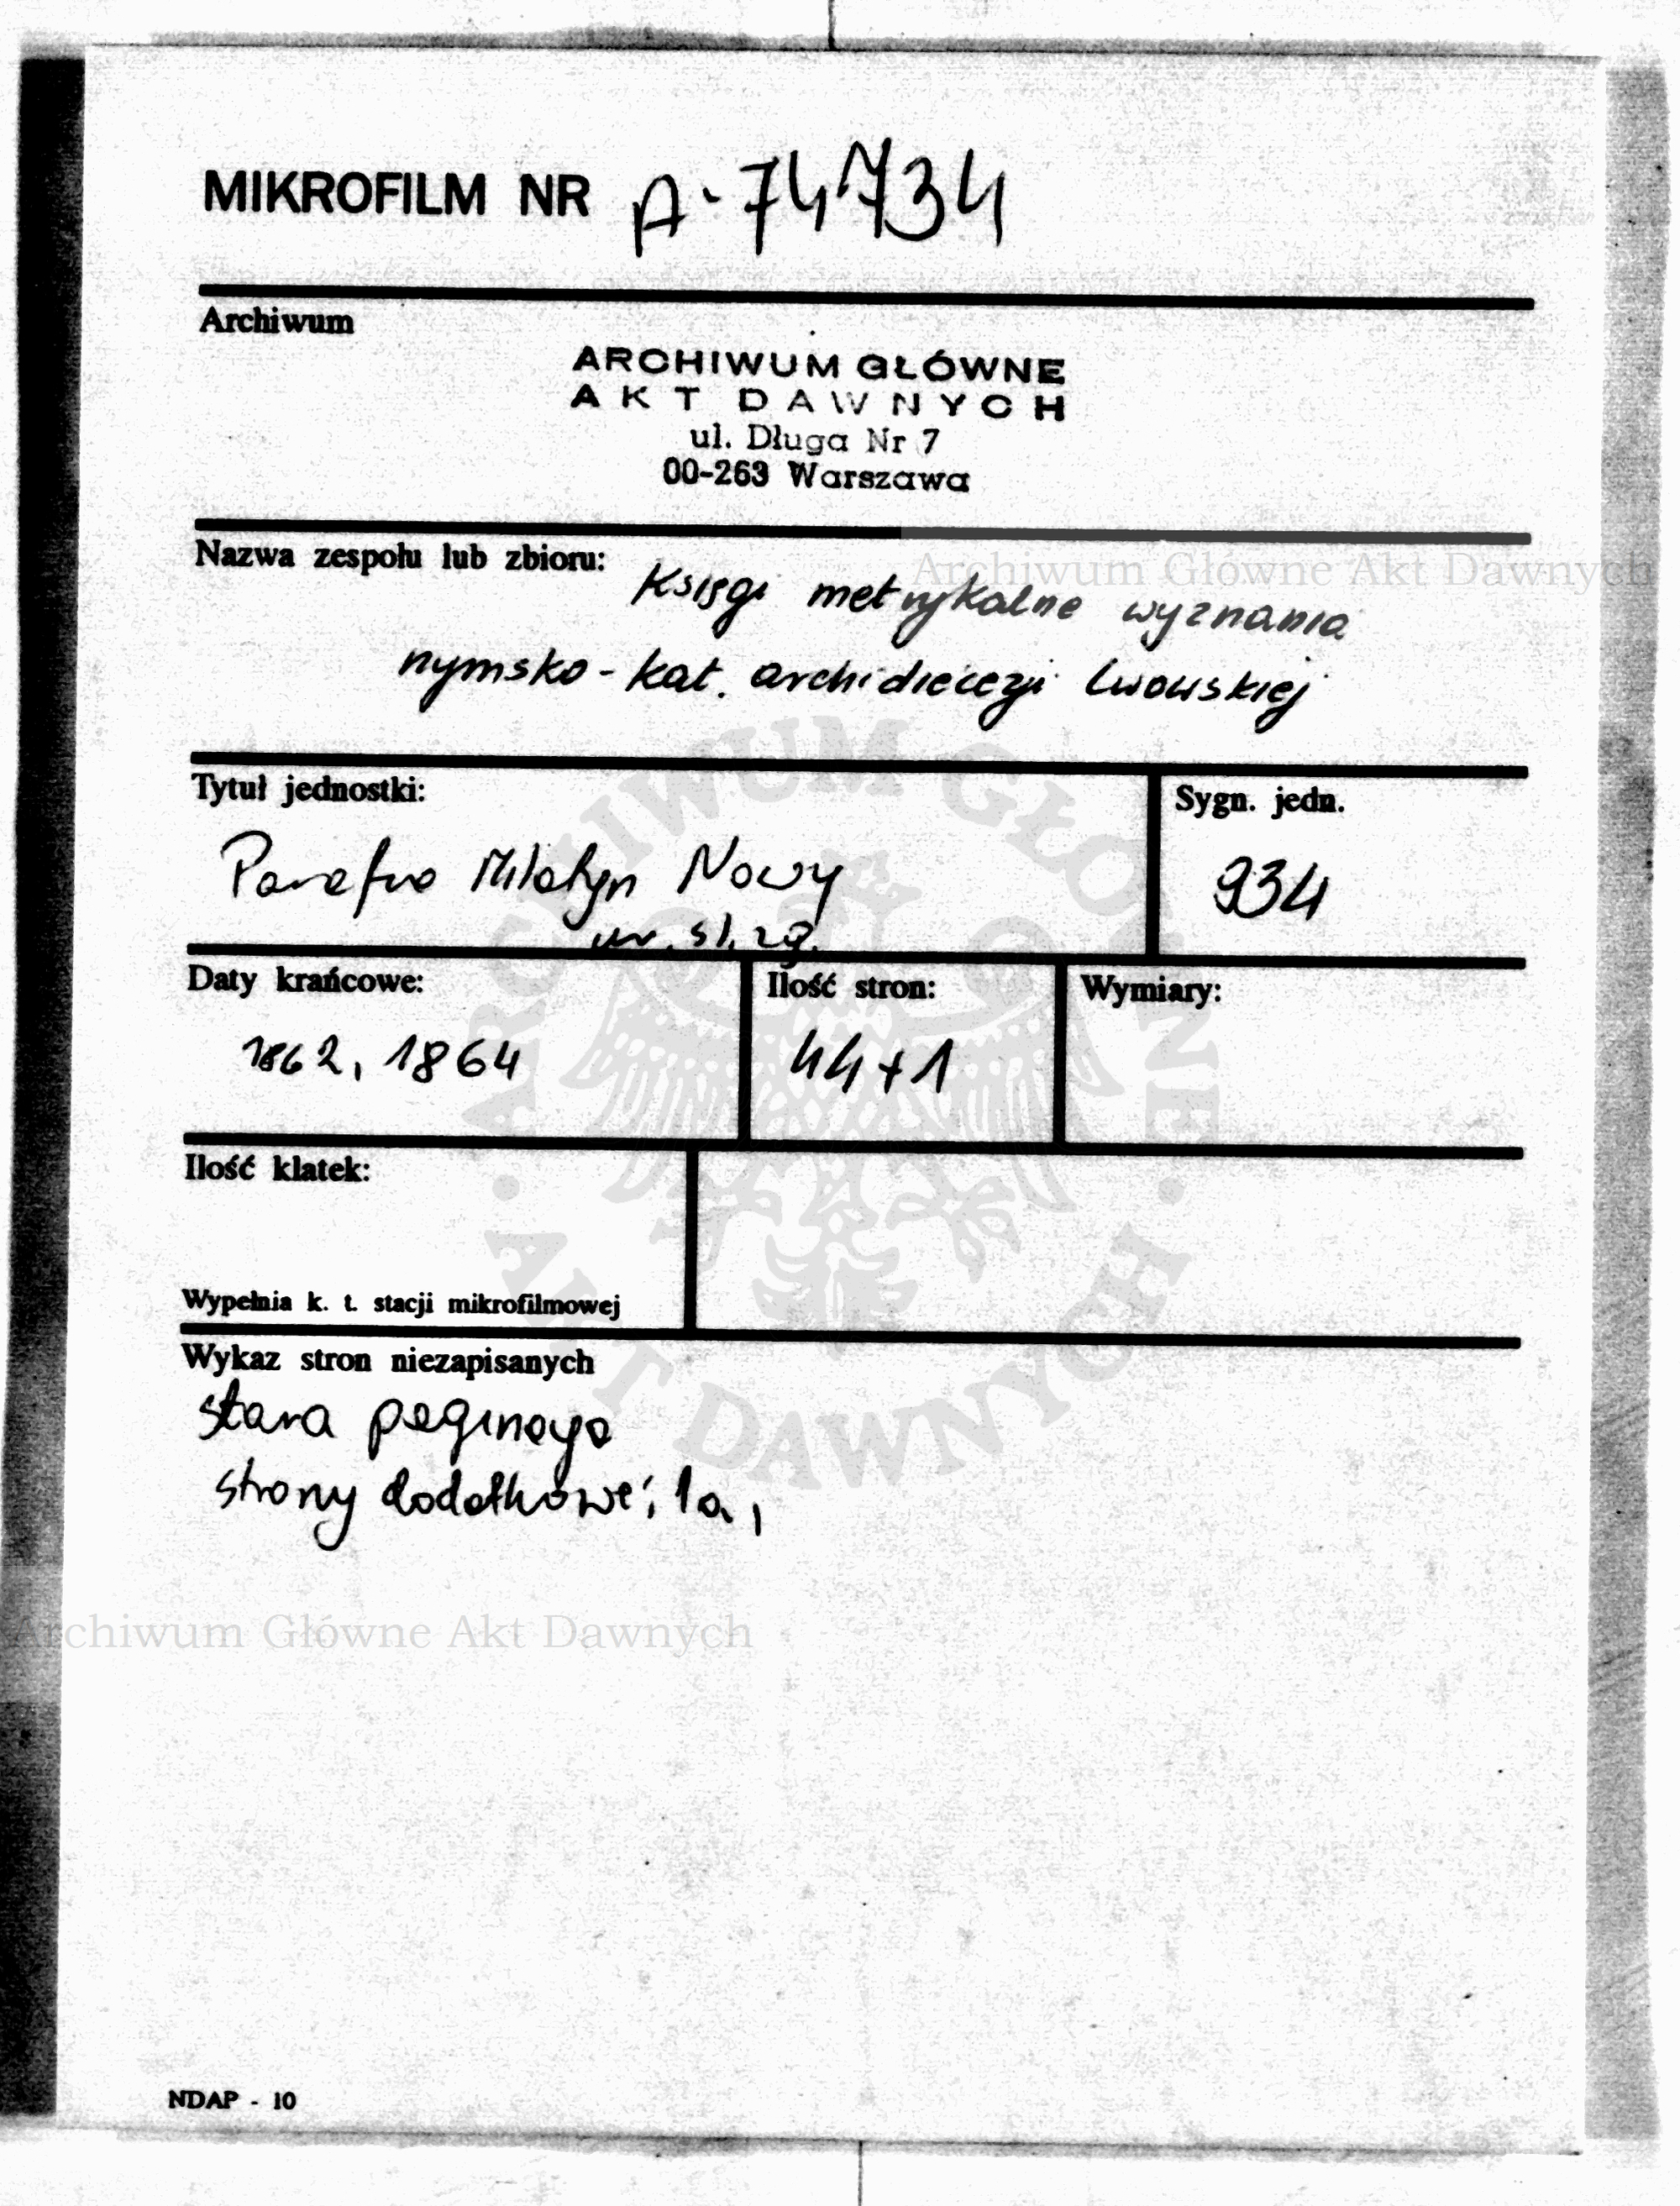 MIKROFILM NR A-74734
Archiwum
ARCHIWUM GŁÓWNE
AKT DAWNYCH
ul. Długa Nr 7
00-263 Warszawa
Nazwa zespołu lub zbioru: Księgi metrykalne wyznania
rzymsko-kat. archidiecezji Lwowskiej
Archiwum Główne Akt Dawnych
Tytuł jednostki:
Parafia Milatyn Nowy
ur. śl. zg.
Sygn. jedn.
934
Daty krańcowe:
1862, 1864
Ilość stron:
44+1
Wymiary:
Ilość klatek:
Wypełnia k. t. stacji mikrofilmowej
Wykaz stron niezapisanych
stara paginacja
strony dodatkowe: 1a,
Archiwum Główne Akt Dawnych
ARCHIWUM GŁÓWNE · AKT DAWNYCH ·
NDAP - 10